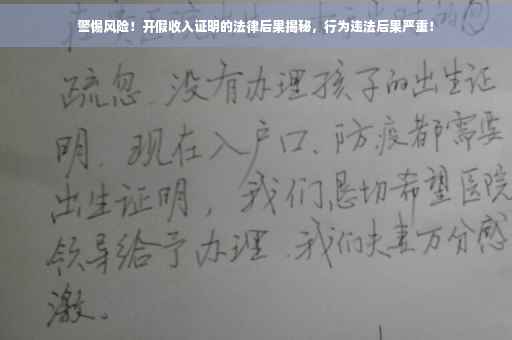 警惕风险！开假收入证明的法律后果揭秘，行为违法后果严重！
的
疏忽、没有办理孩子的出生证
明、现在入户口、防疫都需要
出生证明，我们恳切希望医院
领导给予办理、我们夫妻万分感
激。